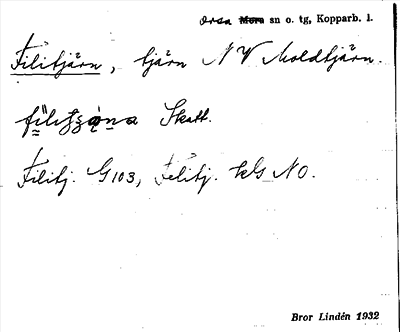 Orsa Mora sn o. tg, Kopparb. l.
Filitjärn, tjärn N V Moldtjärn.
Skatt.
Filitj. G 103, Filitj. kG NO.
Bror Lindén 1932